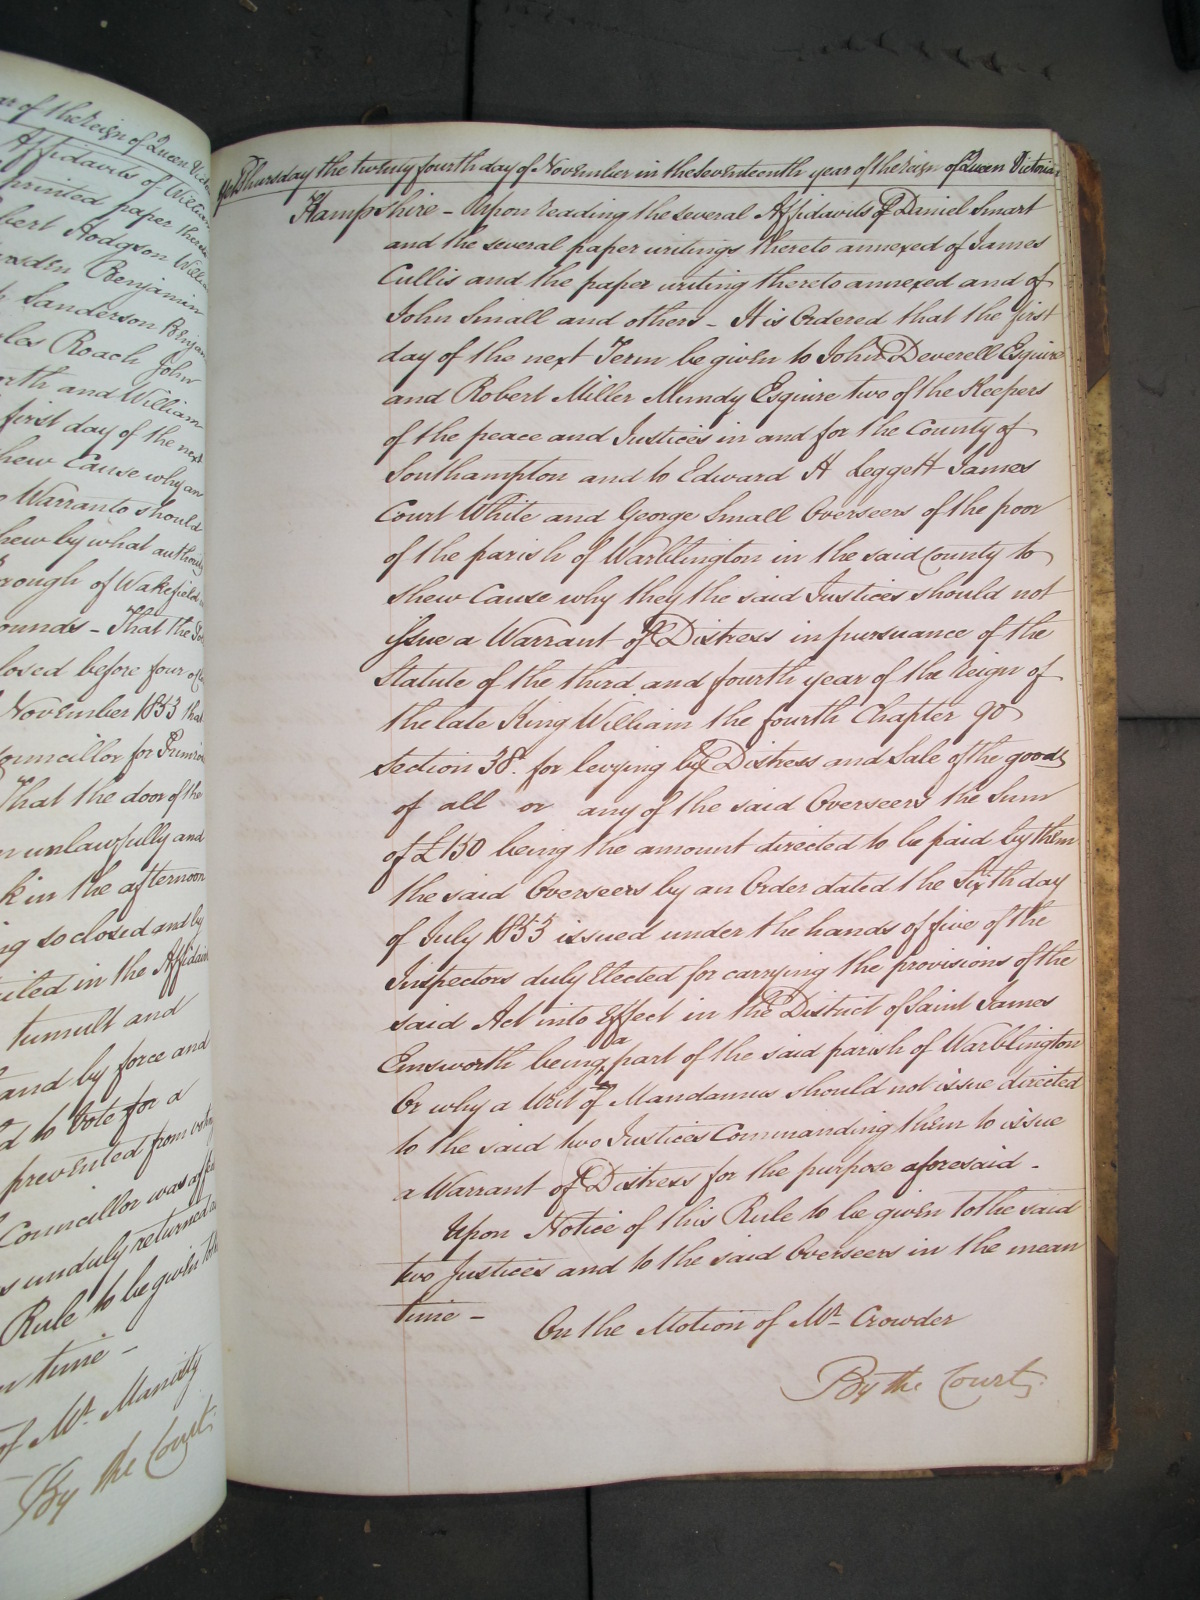 ar of the Reign of Queen Victoria
Affidavits of William
printed paper thereto
bert Hodgson Willi
Benjamin
Sanderson Benjam
les Roach John
rth and William
first day of the next
hew Cause why an
Warranto should
hew by what authority
orough of Wakefield
ounds - That the
losed before four of
November 1853 that
ouncillor for
That the door of the
n unlawfully and
k in the afternoon
ng so closed and by
ailed in the Affidavit
tumult and
and by force and
d to Vote for a
prevented from voting
Councillor was
s unduly returned
Rule to be given to
n time -
of Mr. Manisty
By the Court
Yet Thursday the twenty fourth day of November in the Seventeenth year of the reign of Queen Victoria
Hampshire - Upon reading the several Affidavits of Daniel Smart
and the several paper writings thereto annexed of James
Cullis and the paper writing thereto annexed and of
John Small and others - It is Ordered that the first
day of the next Term be given to John Deverell Esquire
and Robert Miller Mundy Esquire two of the Keepers
of the peace and Justices in and for the County of
Southampton and to Edward H Leggett James
Court White and George Small Overseers of the poor
of the parish of Warblington in the said County to
shew Cause why they the said Justices should not
issue a Warrant of Distress in pursuance of the
Statute of the third and fourth year of the Reign of
the late King William the fourth Chapter 90
section 38. for levying by Distress and Sale of the goods
of all or any of the said Overseers the Sum
of £150 being the amount directed to be paid by them
the said Overseers by an Order dated the Sixth day
of July 1853 issued under the hands of five of the
Inspectors duly Elected for carrying the provisions of the
said Act into Effect in the District of Saint James
Emsworth being a part of the said parish of Warblington
Or why a Writ of Mandamus should not issue directed
to the said two Justices Commanding them to issue
a Warrant of Distress for the purpose aforesaid -
Upon Notice of this Rule to be given to the said
two Justices and to the said Overseers in the mean
time -
On the Motion of Mr. Crowder
By the Court.